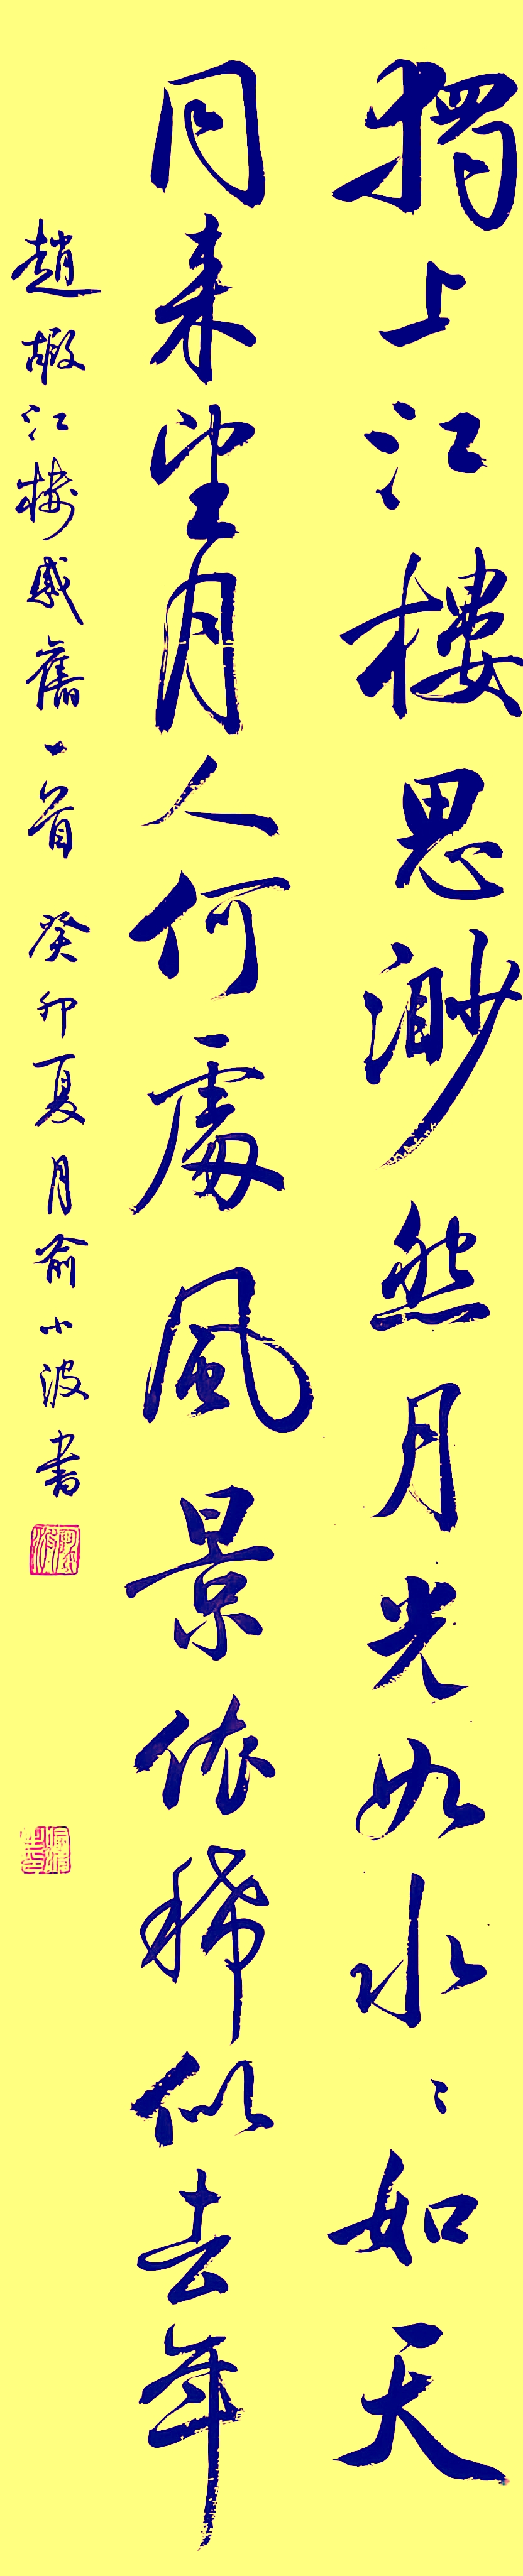 獨上江樓思渺然月光如水〻如天
同来望月人何處風景依稀似去年
趙嘏江樓感舊一首 癸卯夏月俞小波书